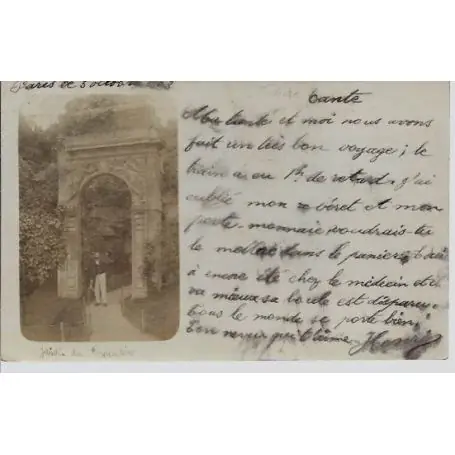 Paris
tante
Ma tante et moi nous avons
fait un très bon voyage ; le
train a eu 1h de retard. J'ai
oublié mon béret et mon
porte-monnaie voudrais-tu
le mettre dans le panier,
à encore été chez le médecin
va mieux sa boule est disparue
tous le monde se porte bien,
Ton neveu qui t'aime Henri
Jardin du